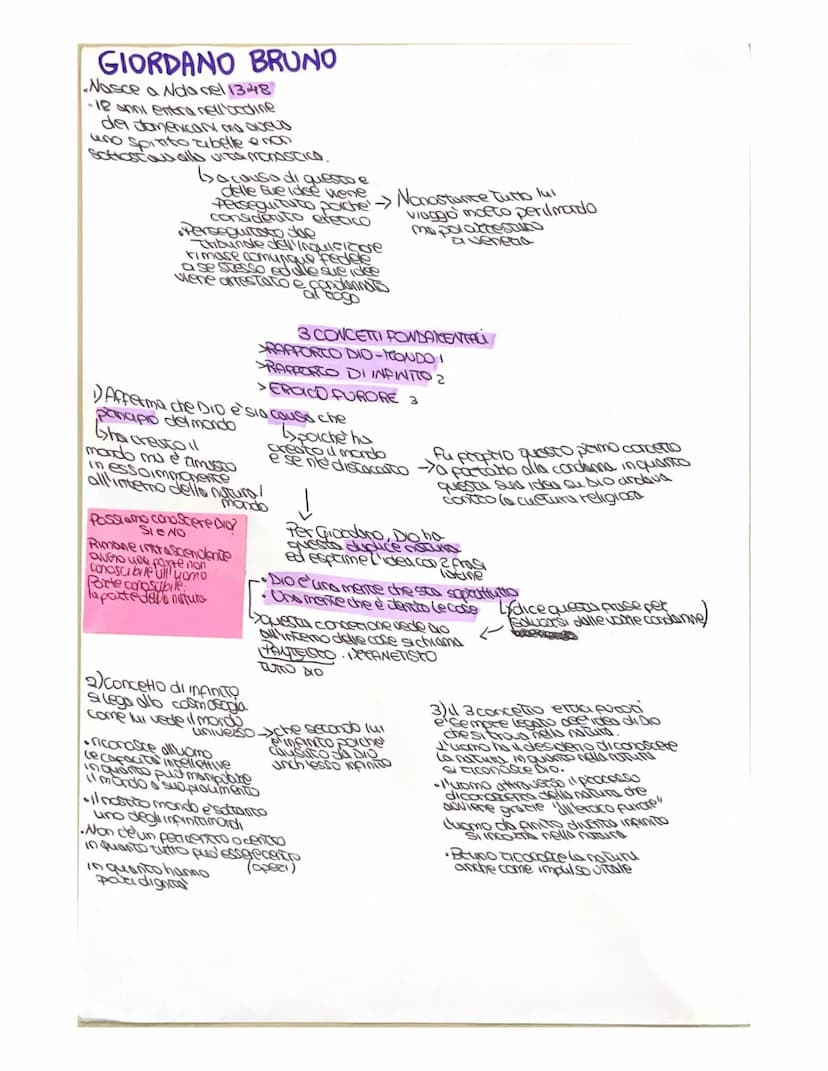 GIORDANO BRUNO
• Nasce a Nola nel 1348
• 18 anni entra nell'ordine
dei domenicani ma aveva
uno spirito ribelle e non
sottostava alla vita monastica.
↳ a causa di questo e
delle sue idee viene
perseguitato poiché
considerato eretico
→ Nonostante tutto lui
viaggiò molto per il mondo
ma poi arrestato
a venezia
• Perseguitato dal
tribunale dell'inquisizione
rimase comunque fedele
a se stesso ed alle sue idee
viene arrestato e condannato
al rogo
3 CONCETTI FONDAMENTALI
> RAPPORTO DIO-MONDO 1
> RAPPORTO DI INFINITO 2
> EROICO FURORE 3
1) Afferma che DIO è sia causa che
principio del mondo
↳ ha creato il
mondo ma è rimasto
in esso immanente
all'interno della natura/
mondo
↳ poiché ha
creato il mondo
e se n'è distaccato
→ Fu proprio questo primo concetto
a portarlo alla condanna in quanto
questa sua idea su Dio andava
contro la cultura religiosa
Possiamo conoscere Dio?
SI E NO
Rimane
ovvero una parte non
conoscibile all'uomo
Parte conoscibile:
la parte della natura
↓
Per Giordano, Dio ha
questa duplice natura
ed esprime l'idea con 2 frasi
latine
• Dio è una mente che sta soprattutto
• Una mente che è dentro le cose
↳ dice questa frase per
salvarsi dalle varie condanne)
↳ questa concezione vede Dio
all'interno delle cose si chiama
PANTEISTO.
TUTTO DIO
2) Concetto di infinito
si lega alla cosmologia
come lui vede il mondo
universo
→ che secondo lui
è infinito poiché
causato da DIO
anch'esso infinito
• riconosce all'uomo
le capacità intellettive
in quanto può manipolare
il mondo a suo piacimento
• il nostro mondo è soltanto
uno degli infiniti mondi
• Non c'è un pericentro o centro
in quanto tutto può essere centro
in quanto hanno
pari dignità
3) il 3 concetto eroici furori
è sempre legato all'idea di Dio
che si trova nella natura.
L'uomo ha il desiderio di conoscere
la natura, in quanto nella natura
si riconosce Dio.
• l'uomo attraverso il processo
di conoscenza della natura che
avviene grazie "all'eroico furore"
L'uomo da finito diventa infinito
nella natura
• Bruno riconosce la natura
anche come impulso vitale